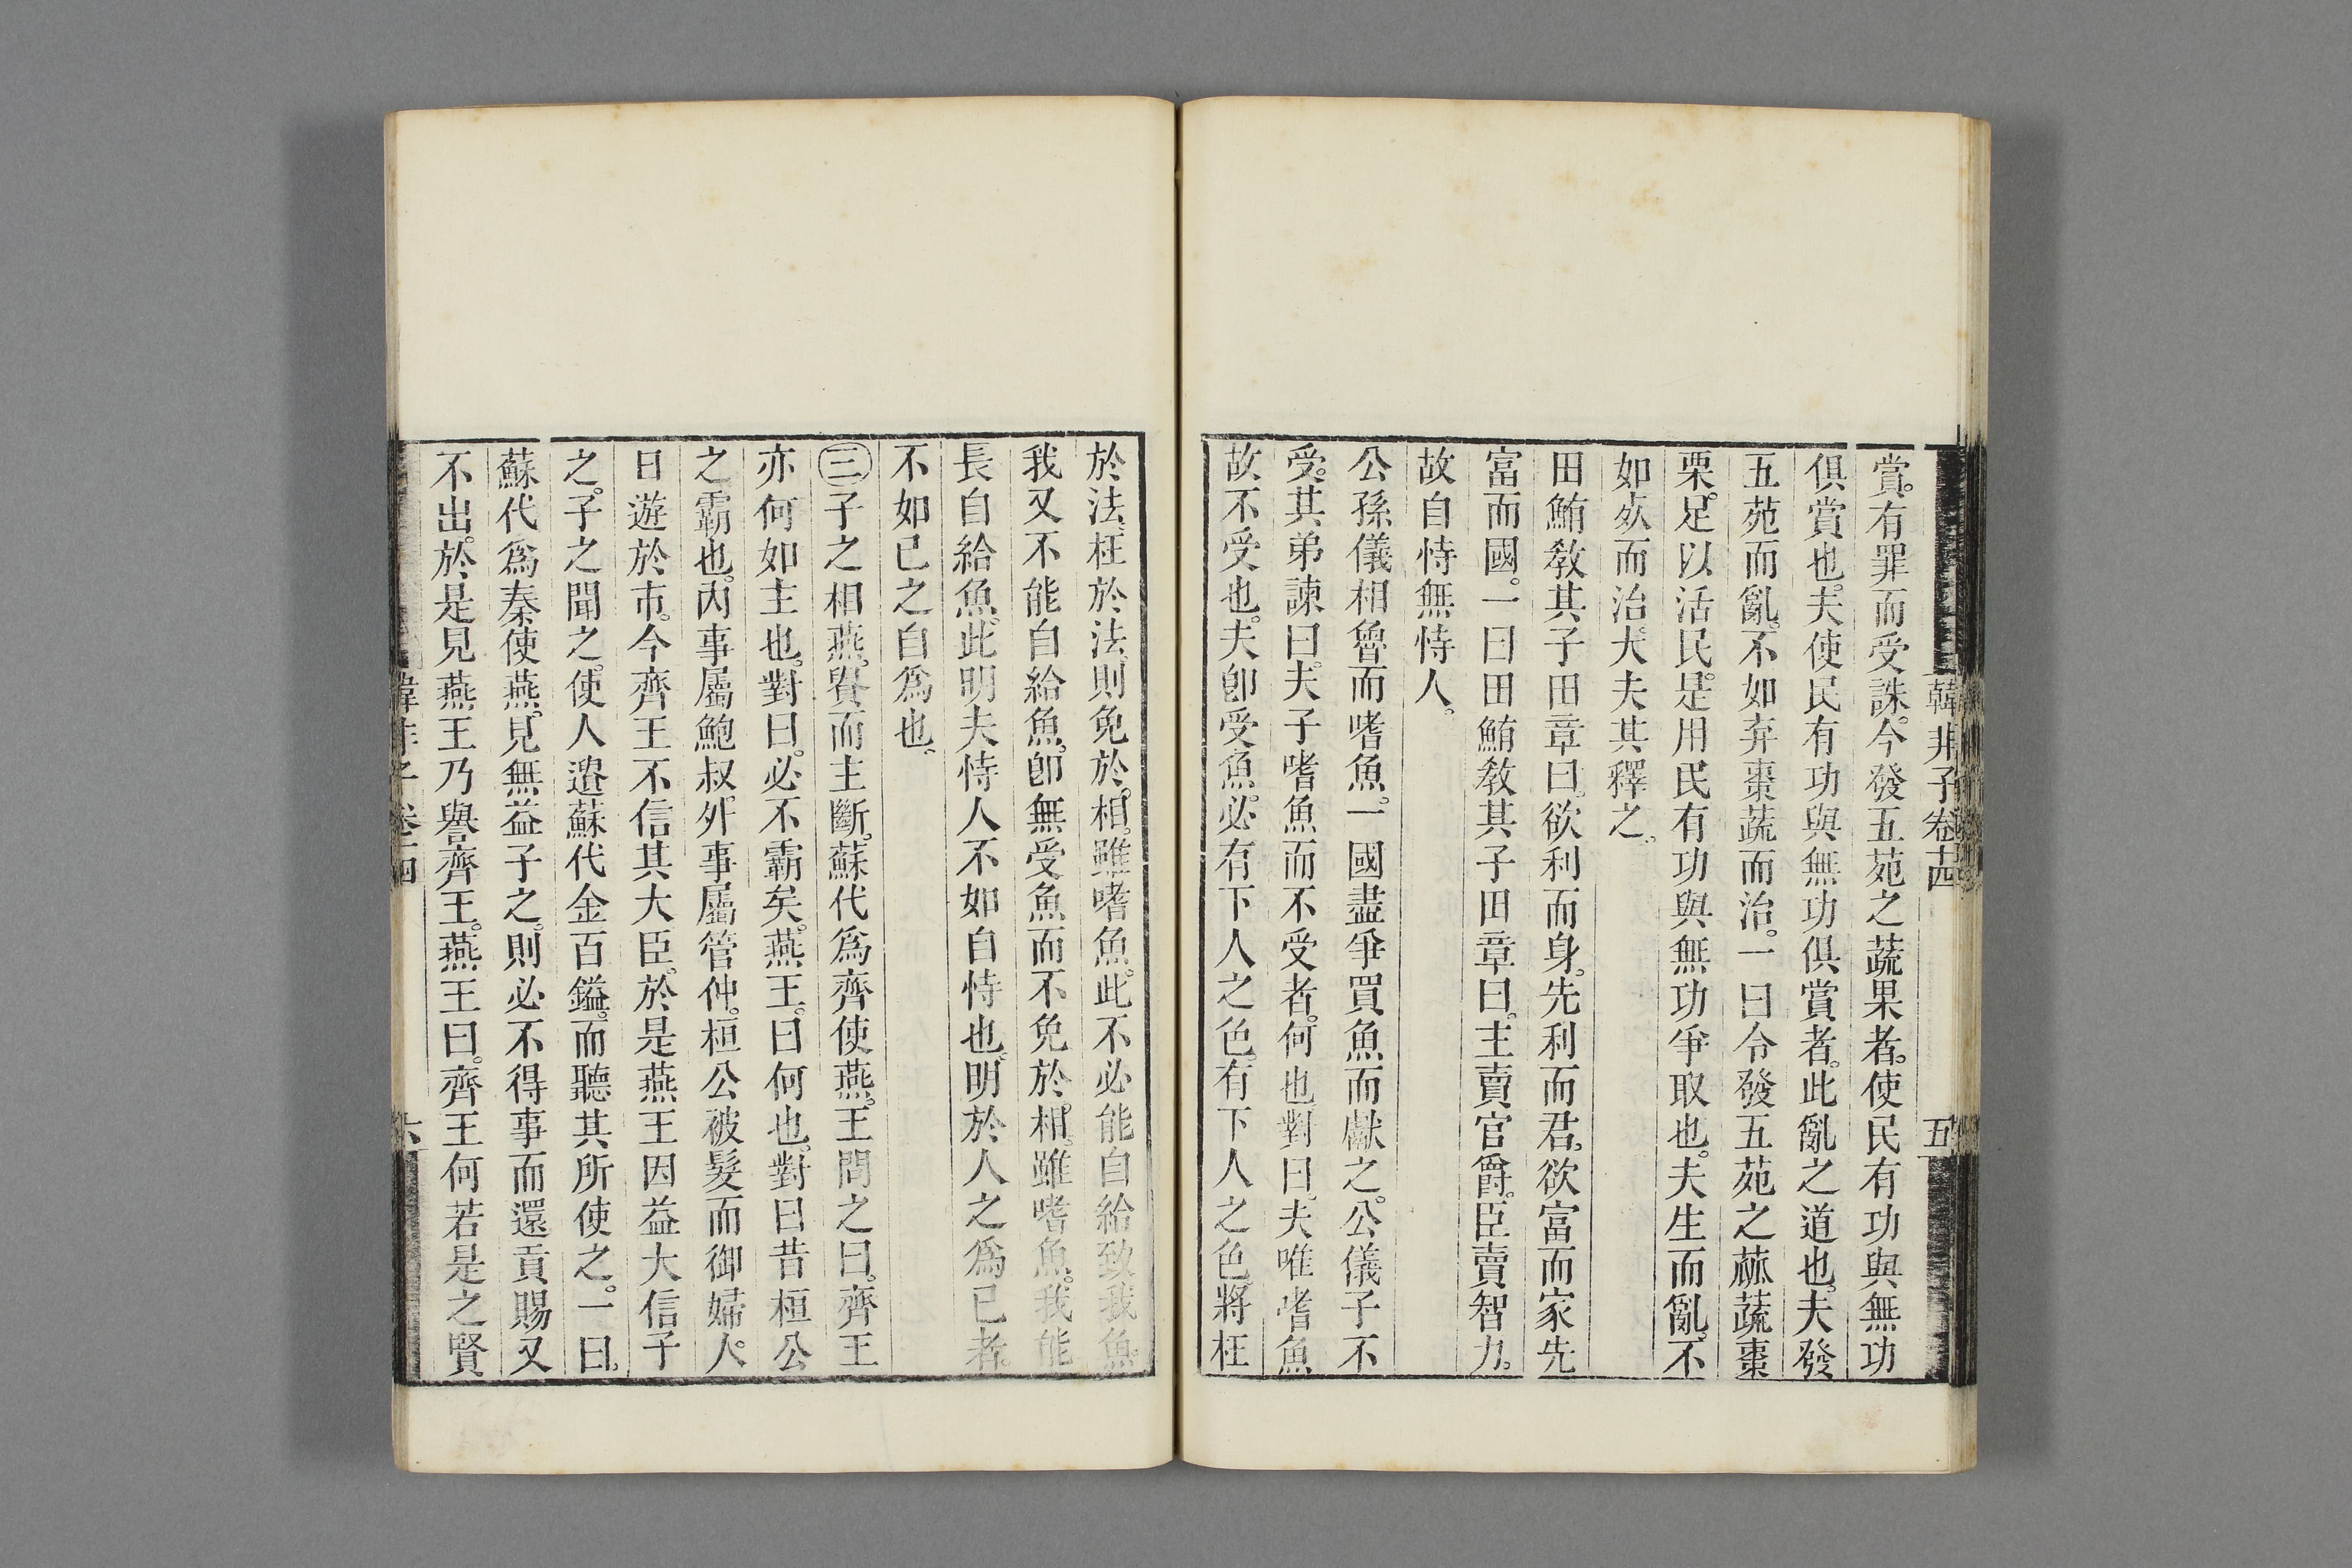 韓非子卷十四
五
賞。有罪而受誅。今發五苑之蔬果者。使民有功與無功
俱賞也。夫使民有功與無功俱賞者。此亂之道也。夫發
五苑而亂。不如弃棗蔬而治。一曰令發五苑之蓏蔬棗
栗。足以活民。是用民有功與無功爭取也。夫生而亂。不
如死而治。大夫其釋之。
田鮪敎其子田章曰。欲利而身。先利而君。欲富而家先
富而國。一曰田鮪敎其子田章曰。主賣官爵。臣賣智力。
故自恃無恃人。
公孫儀相魯而嗜魚。一國盡爭買魚而獻之。公儀子不
受。其弟諫曰。夫子嗜魚而不受者。何也對曰。夫唯嗜魚
故不受也。夫卽受魚。必有下人之色。有下人之色。將枉
於法。枉於法。則免於。相。雖嗜魚。此不必能自給致我魚
我又不能自給魚。卽無受魚而不免於。相。雖嗜魚。我能
長自給魚。此明夫恃人不如自恃也。明於人之爲已者。
不如已之自爲也。
㊂子之相燕。貴而主斷。蘇代爲齊使燕。王問之曰。齊王
亦何如主也。對曰。必不霸矣。燕王。曰何也。對曰昔桓公
之霸也。內事屬鮑叔。外事屬管仲。桓公被髮而御婦人。
日遊於市。今齊王不信其大臣。於是燕王因益大信子
之。子之聞之。使人遺蘇代金百鎰。而聽其所使之。一曰。
蘇代爲秦使燕。見無益子之。則必不得事而還貢賜又
不出。於是見燕王乃譽齊王。燕王曰。齊王何若是之賢
韓非子卷十四
六